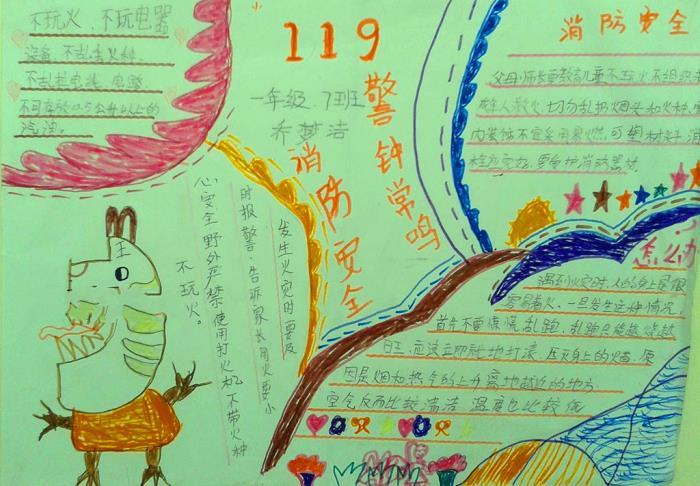 不玩火、不玩电器
设备、不乱丢火种、
不乱拉电线、电路
不可存放0.5公斤以上的
汽油。
119
一年级、7班
乔梦洁
警钟常鸣
消防安全
消防安全
父母师长要教育儿童不玩火不组织未
成年人救火,切勿乱扔烟头和火种,室
内装饰不宜采用易燃可
发生火灾时要及
时报警,告诉家长用火要小
心安全野外严禁使用打火机不带火种
不玩火。
王
遇到火灾时,人的身上是很
容易着火,一旦发生这种情况,
首先不要惊慌乱跑,乱跑只能越烧越
旺,应该立即就地打滚,压灭身上的火焰,原
因是烟和热气的上升离地越近的地方
空气反而比较清洁 温度也比较低